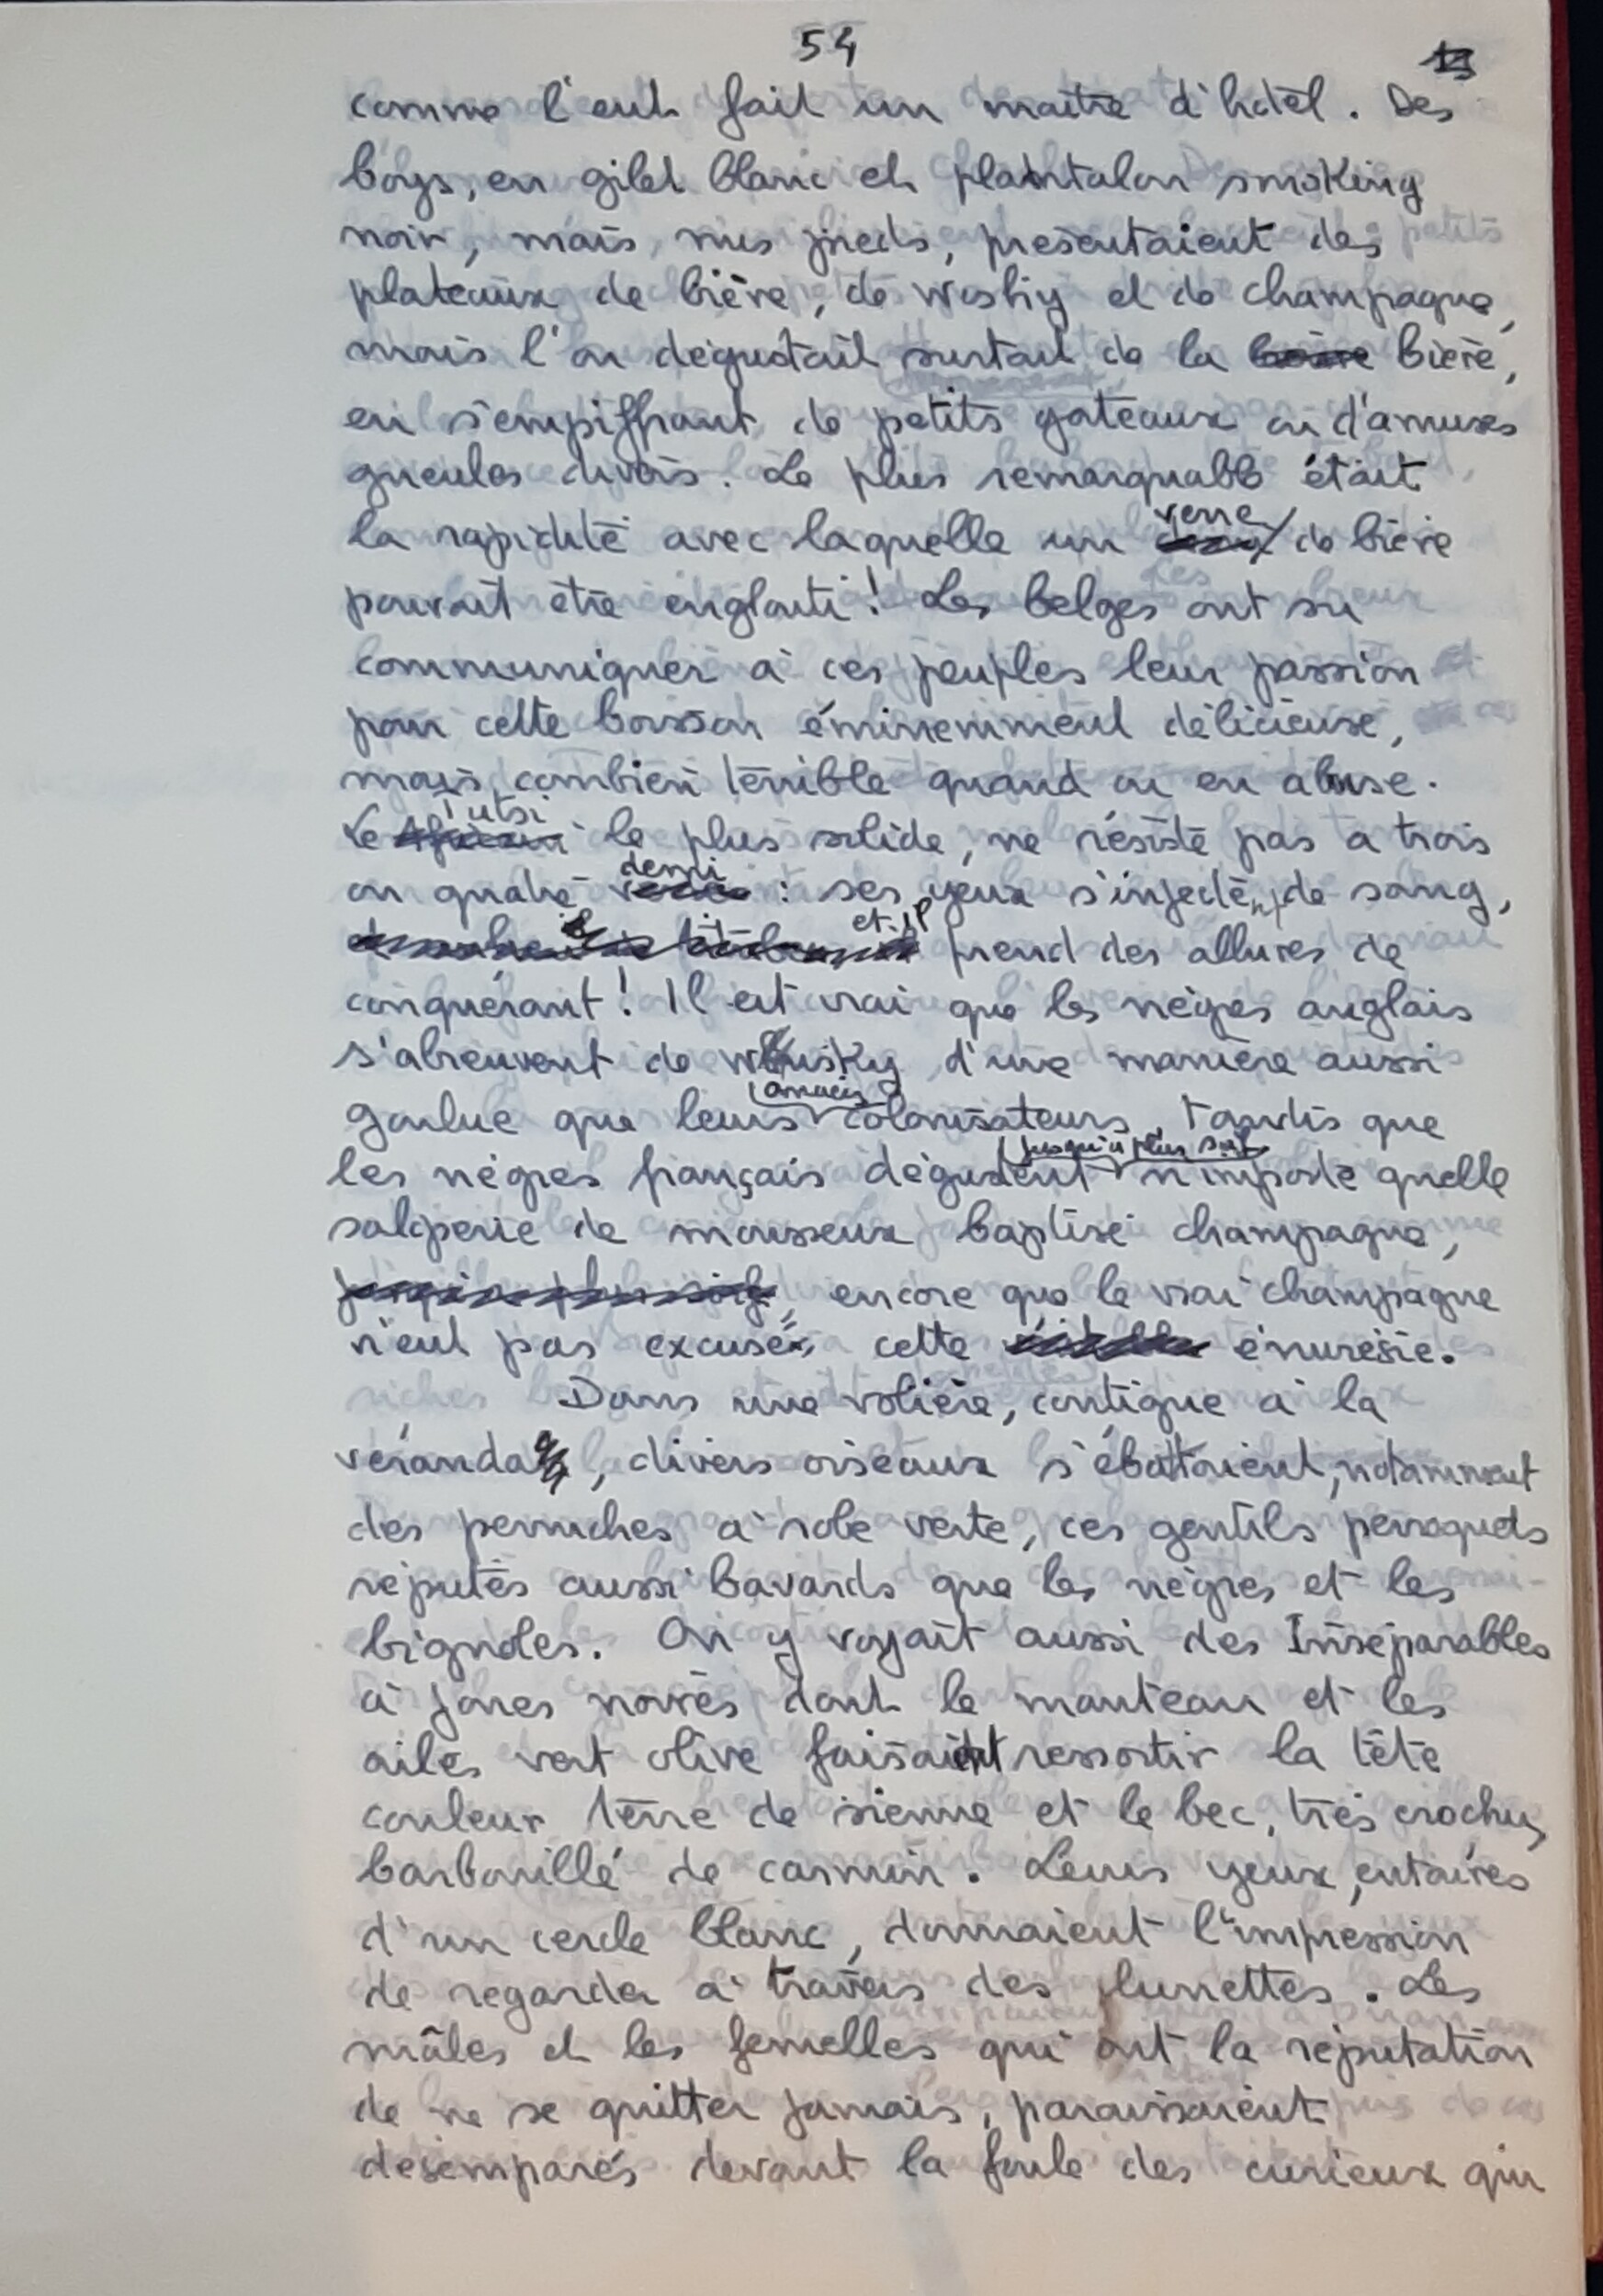 54
comme l'eut fait un maitre d'hotel. Des
boys, en gilet blanc et plantalon smoking
noir, mais nus pieds, présentaient des
plateaux de bière, de wisky et de champagne,
mais l'on dégustait surtout de la bière,
en s'empiffrant de petits gateaux ou d'amuses
gueules divers. Le plus remarquable était
la rapidité avec laquelle un verre de bière
pouvait être englouti! Les belges ont su
communiquer à ces peuples leur passion
pour cette boisson éminemment délicieuse,
mais combien terrible quand on en abuse.
Le Tutsi le plus solide, ne résiste pas a trois
ou quatre demi : ses yeux s'injectent de sang,
et il prend des allures de
conquérant! Il est vrai que les nègres anglais
s'abreuvent de whisky d'une manière aussi
goulue que leurs anciens colonisateurs, tandis que
les nègres français dégustent jusqu'à plus soif n'importe quelle
saloperie de mousseux baptisé champagne,
encore que le vrai champagne
n'eut pas excusé cette énurésie.
Dans une volière, contigue à la
véranda, divers oiseaux s'ébattaient, notamment
des perruches à robe verte, ces gentils perroquets
réputés aussi bavards que les nègres et les
bignoles. On y voyait aussi des Inséparables
à joues noires dont le manteau et les
ailes vert olive faisaient ressortir la tête
couleur terre de sienne et le bec, très crochu,
barbouillé de carmin. Leurs yeux, entourés
d'un cercle blanc, donnaient l'impression
de regarder à travers des lunettes. Les
mâles et les femelles qui ont la réputation
de ne se quitter jamais, paraissaient
désemparés devant la foule des curieux qui